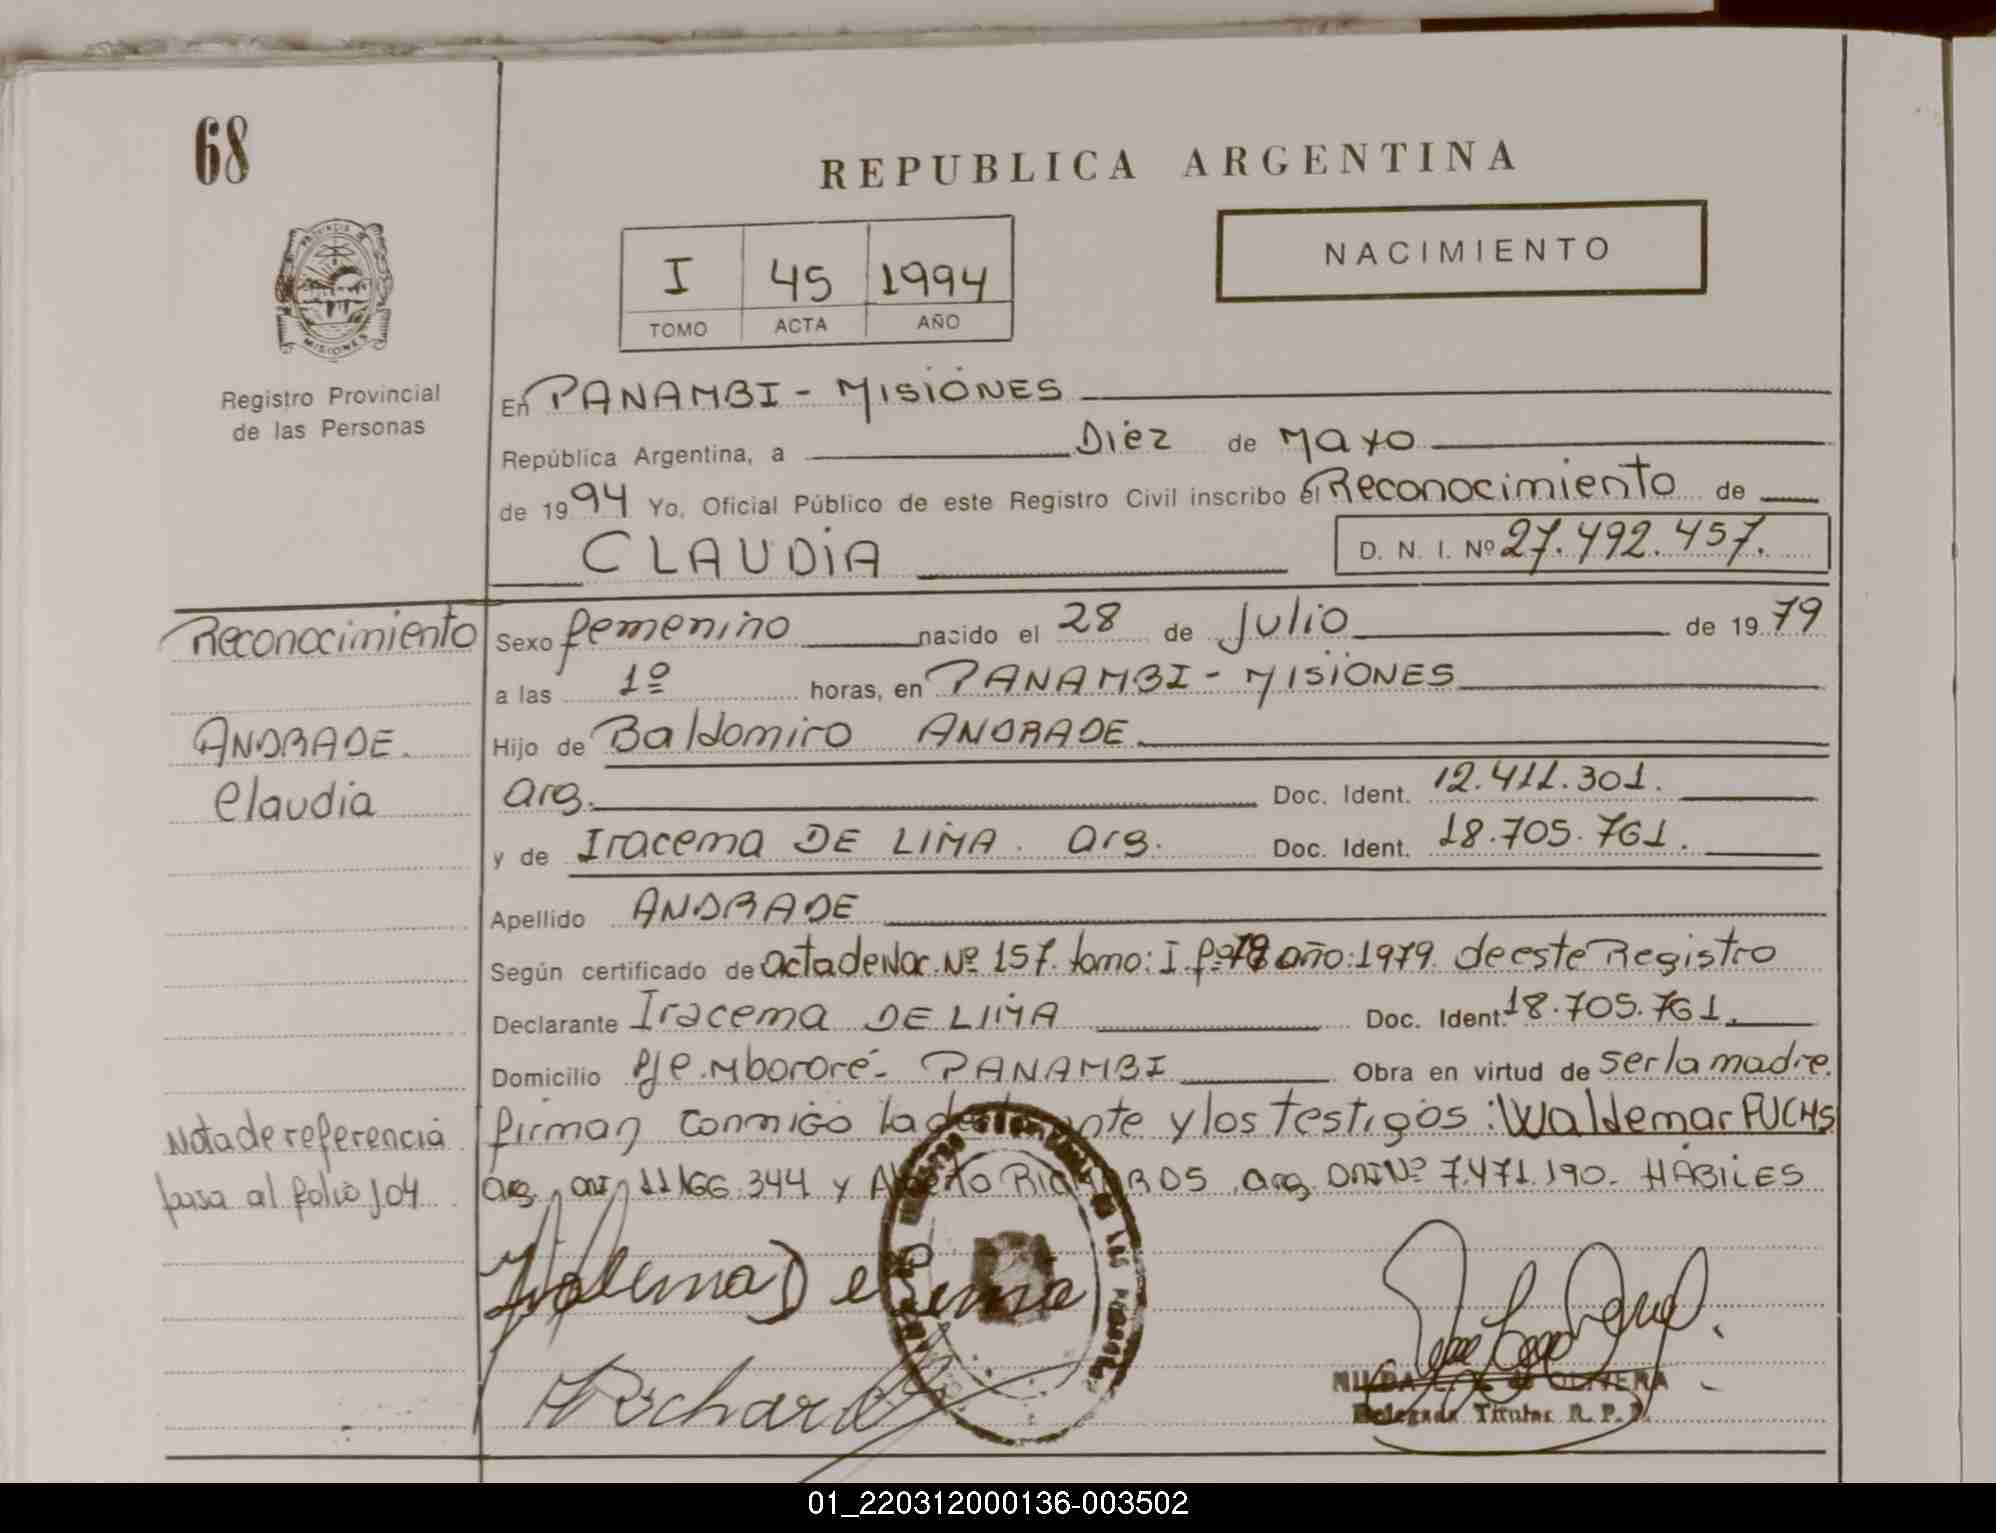 68
REPUBLICA ARGENTINA
NACIMIENTO
I 45 1994
TOMO ACTA AÑO
MISIONES
Registro Provincial
de las Personas
En PANAMBI - MISIONES
República Argentina, a Diez de Mayo
de 1994 Yo, Oficial Público de este Registro Civil inscribo el Reconocimiento de
CLAUDIA D. N. I. Nº 27.492.457.
Reconocimiento
ANDRADE.
Claudia
Sexo femenino nacido el 28 de Julio de 1979
a las 1º horas, en PANAMBI - MISIONES
Hijo de Baldomiro ANDRADE
arg. Doc. Ident. 12.411.301.
y de Iracema DE LIMA. arg. Doc. Ident. 18.705.761.
Apellido ANDRADE
Según certificado de acta de Nac. Nº 157. tomo: I. fº 79 año: 1979. de este Registro
Declarante Iracema DE LIMA Doc. Ident. 18.705.761.
Domicilio Pje. Mbororé - PANAMBI Obra en virtud de ser la madre.
Nota de referencia
pasa al folio 104
firman conmigo la declarante y los testigos: Waldemar FUCHS
arg. DNI 11.166.344 y Alberto RICHARDS. arg. DNI Nº 7.471.190. HÁBILES
de OLIVERA
Delegada Titular R. P. P.
01_220312000136-003502